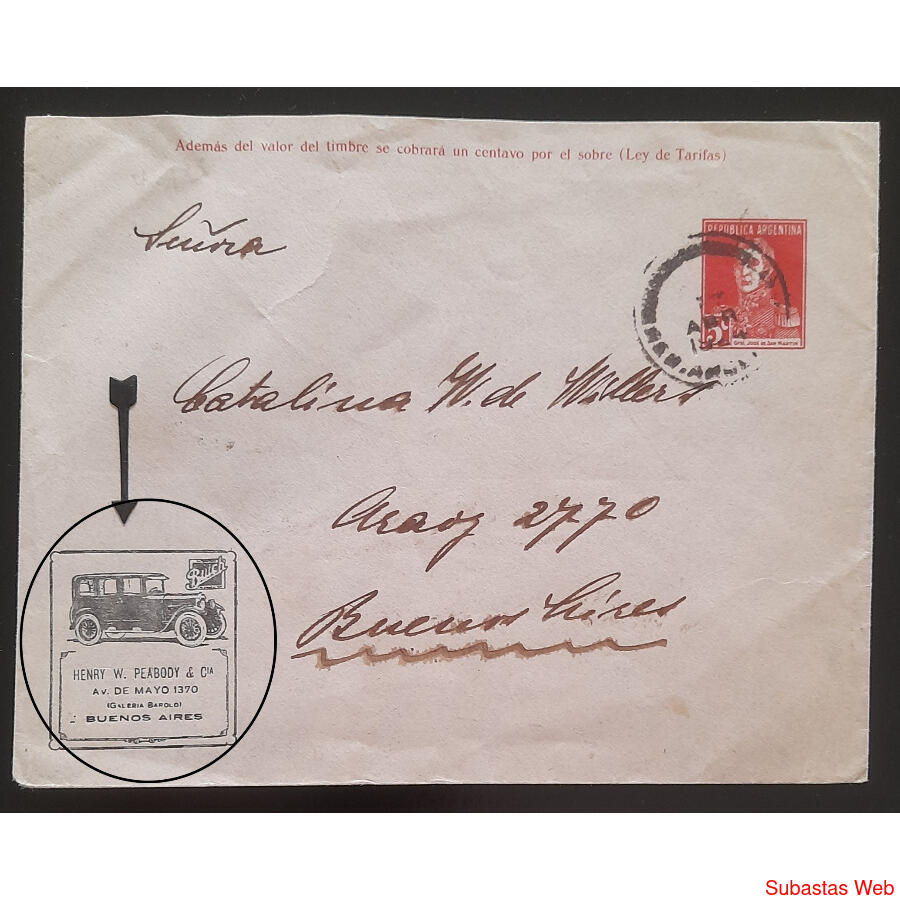 Además del valor del timbre se cobrará un centavo por el sobre (Ley de Tarifas)
Señora
REPUBLICA ARGENTINA
5c
Gral. José de San Martín
ABR
Catalina W. de Willers
Araoz 2770
Buenos Aires
Buick
HENRY W. PEABODY & CIA
AV. DE MAYO 1370
(GALERIA BAROLO)
BUENOS AIRES
Subastas Web